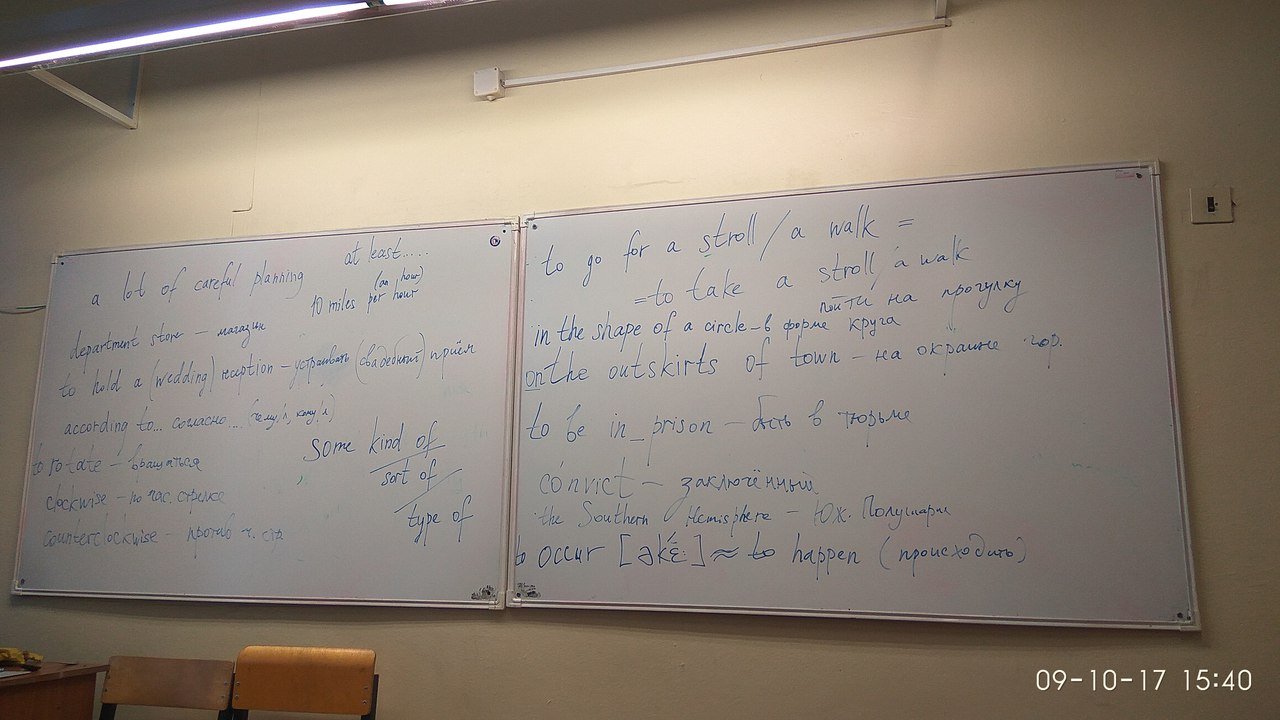 a lot of careful planning
at least.....
(an hour)
40 miles per hour
department store – магазин
to hold a (wedding) reception – устраивать (свадебный) приём
according to... согласно... (чему-л, кому-л)
to rotate – вращаться
clockwise – по час. стрелке
counterclockwise – против ч. стр
some kind of
sort of
type of
to go for a stroll / a walk =
= to take a stroll / a walk
пойти на прогулку
in the shape of a circle – в форме круга
on the outskirts of town – на окраине гор.
to be in_prison – быть в тюрьме
cónvict – заключённый
the Southern Hemisphere – Юж. Полушарие
to occur [əkɛ́:] ≈ to happen (происходить)
09-10-17 15:40